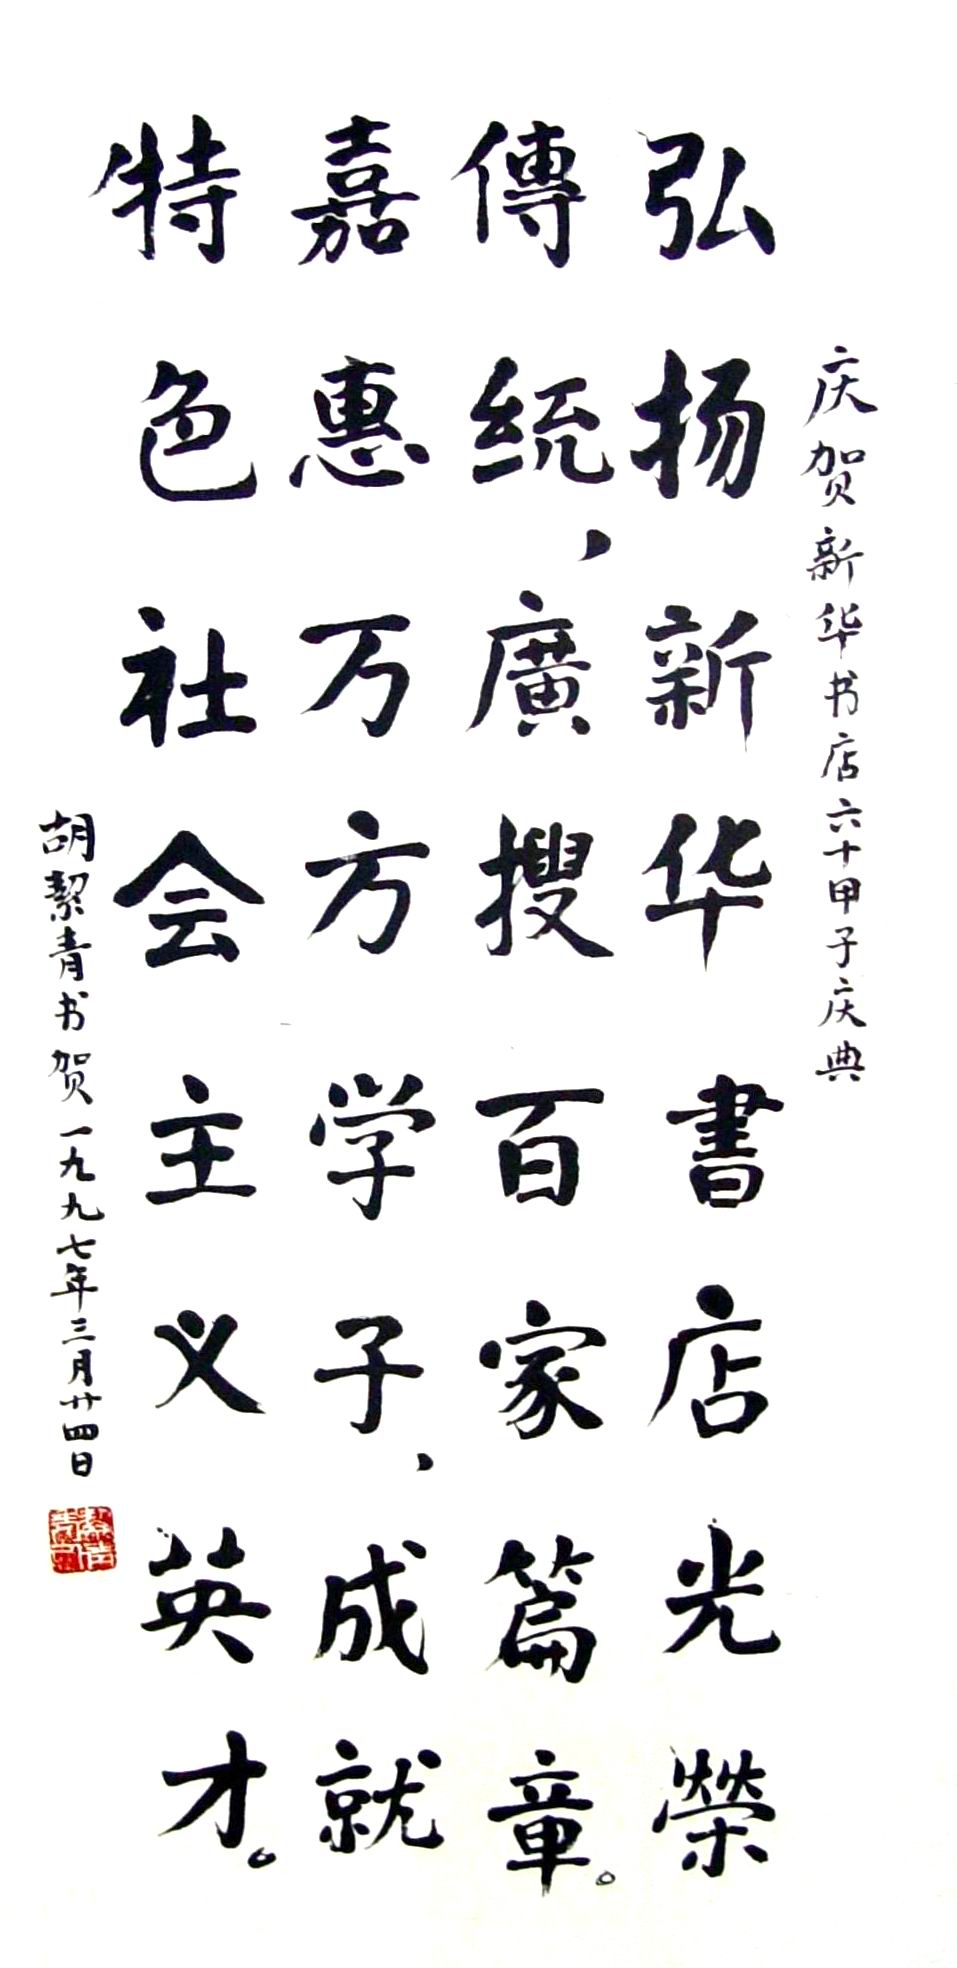 庆贺新华书店六十甲子庆典
弘扬新华書店光榮
傳统，廣搜百家篇章。
嘉惠万方学子，成就
特色社会主义英才。
胡絜青书贺一九九七年三月廿四日